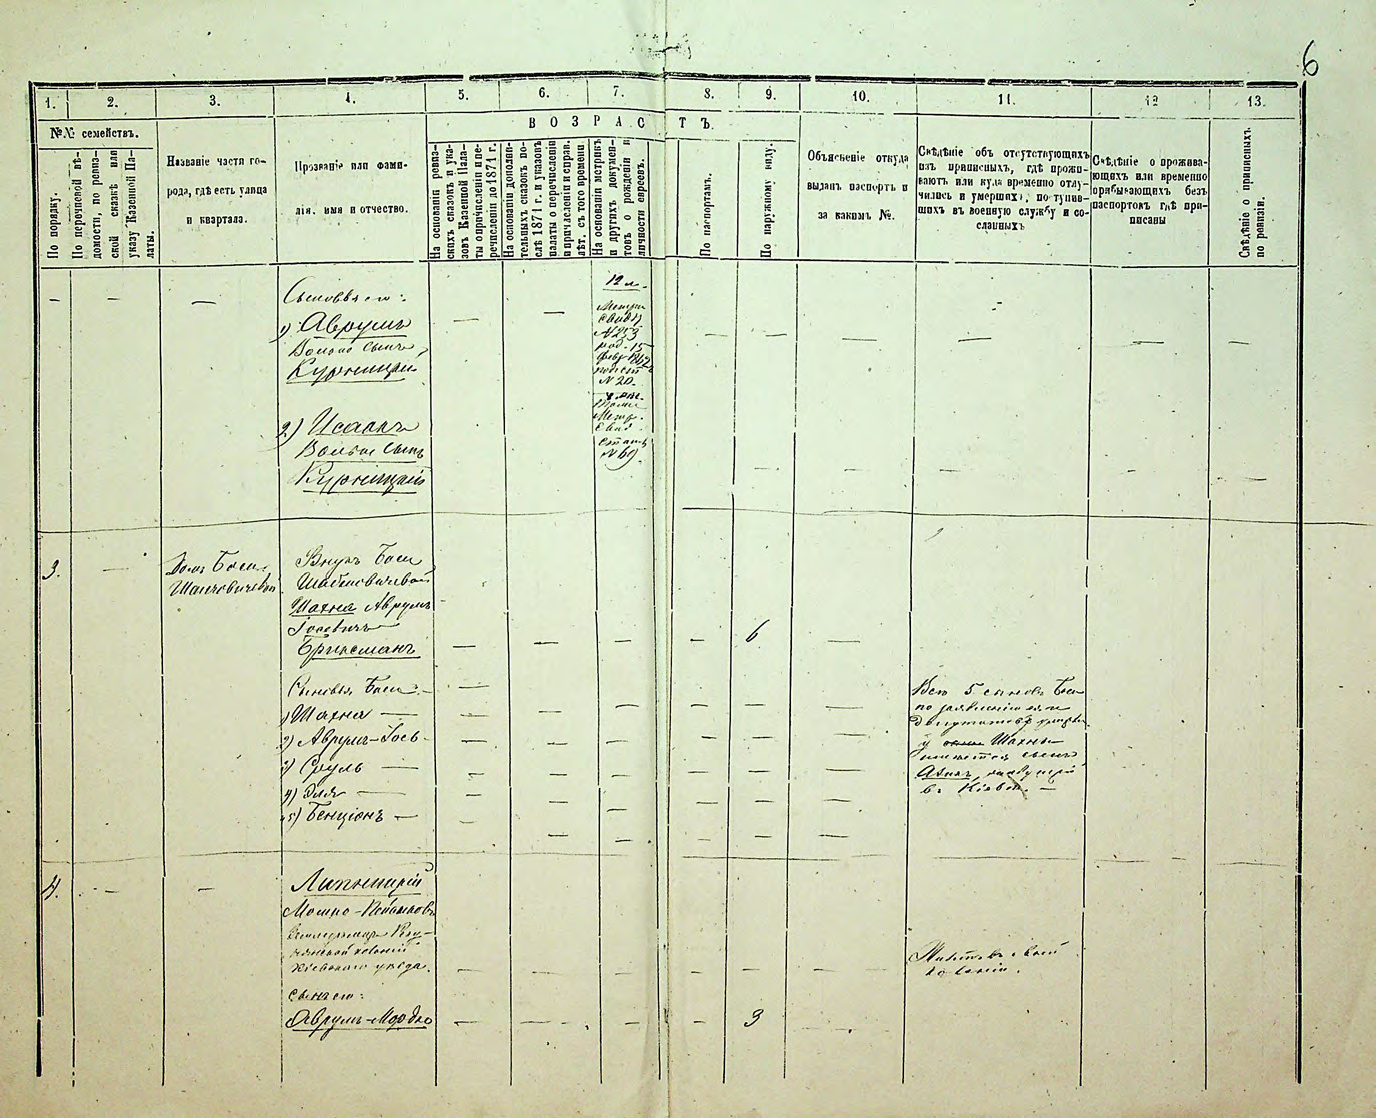 6
1. 2. 3. 4. 5. 6. 7. 8. 9. 10. 11. 12 13.
№№ семействъ.
По порядку.
По перечневой вѣ-
домости, по ревиз-
ской сказкѣ или
указу Казенной Па-
латы.
Названіе части го-
рода, гдѣ есть улица
и квартала.
Прозваніе или фами-
лія, имя и отчество.
ВОЗРАСТЪ.
На основаніи ревиз-
скихъ сказокъ и ука-
зовъ Казенной Пала-
ты о причисленіи и пе-
речисленіи до 1874 г.
На основаніи дополни-
тельныхъ сказокъ по-
слѣ 1871 г. и указовъ
палаты о перечисленіи
и причисленіи и справ.
лѣт. съ того времени.
На основаніи метрикъ
и другихъ докумен-
товъ о рожденіи и
личности евреевъ.
По паспортамъ.
По наружному виду.
Объясненіе откуда
выданъ паспортъ и
за какимъ №.
Свѣдѣніе объ отсутствующихъ
изъ приписныхъ, гдѣ прожи-
ваютъ или куда временно отлу-
чились и умершихъ, поступив-
шихъ въ военную службу и со-
сланныхъ
Свѣдѣніе о прожива-
ющихъ или временно
пребывающихъ безъ
паспортовъ гдѣ при-
писаны
Свѣдѣніе о приписныхъ
по ревизіи.
— — — Сыновья его: — — — — — — —
1) Аврумъ
Волько сынъ
Курницкій
12 л.
Метри
свид
№ 253
род. 15
февр
№ 20.
2) Исаакъ
Волько сынъ
Курницкій
Метр.
свид
№ 69
— — — — — —
3. — Домъ Баси
Шаповичевой
Внукъ Баси
Шахна Аврумъ
Іосевичъ
Бриксманъ — — — — 6 —
Сыновья Баси —
1) Шахна —
2) Аврумъ-Іось —
3) Сруль —
4) Эля —
5) Бенціонъ —
Всѣ 5 сыновъ Баси
по заявленію
депутатовъ
у Шахны
имѣется сынъ
въ Кіевѣ. —
4. — — Липницкій
Мошко-
колоніи
Кіевскаго уѣзда. — — — — — —
Житъ въ своей
колоніи.
сынъ его:
Аврумъ-Мордко — — — — 3 —